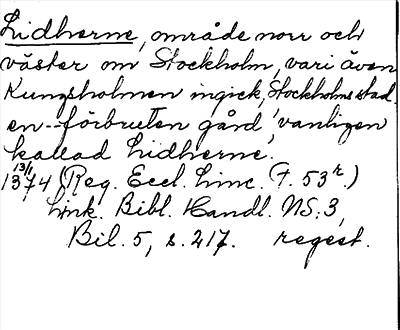 Lidherne, område norr och
väster om Stockholm, vari även
Kungsholmen ingick, Stockholms stad.
en "förbruten gård", vanligen
kallad Lidherne.
13/1
1374 (Reg. Eccl. Linc. (f. 53r.)
Link. Bibl. Handl. NS: 3,
Bil. 5, s. 217. regest.